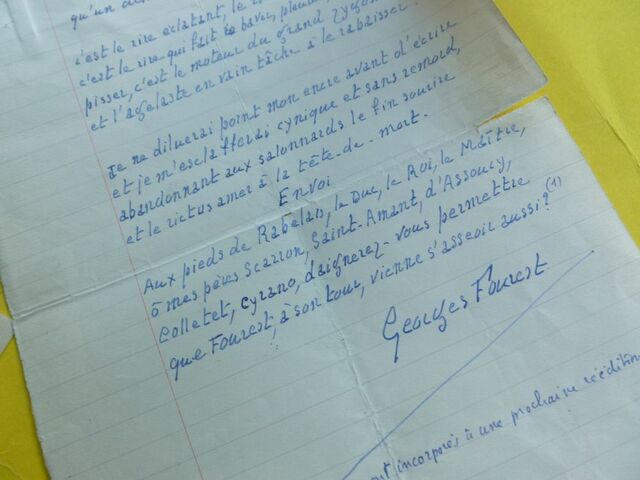 qu'un
c'est le rire éclatant, le
c'est le rire qui fait baver,
pisser, c'est le moteur du grand
et l'agélaste en vain tâche à le rabaisser!
Je ne diluerai point mon encre avant d'écrire
et je m'esclafferai cynique et sans remord,
abandonnant aux salonnards le fin sourire
et le rictus amer à la tête-de-mort.
Envoi
Aux pieds de Rabelais, le Duc, le Roi, le Maître,
ô mes pères Scarron, Saint-Amant, d'Assoucy,
Colletet, Cyrano, daignerez-vous permettre
que Fourest, à son tour, vienne s'asseoir aussi? (1)
Georges Fourest
incorporés à une prochaine